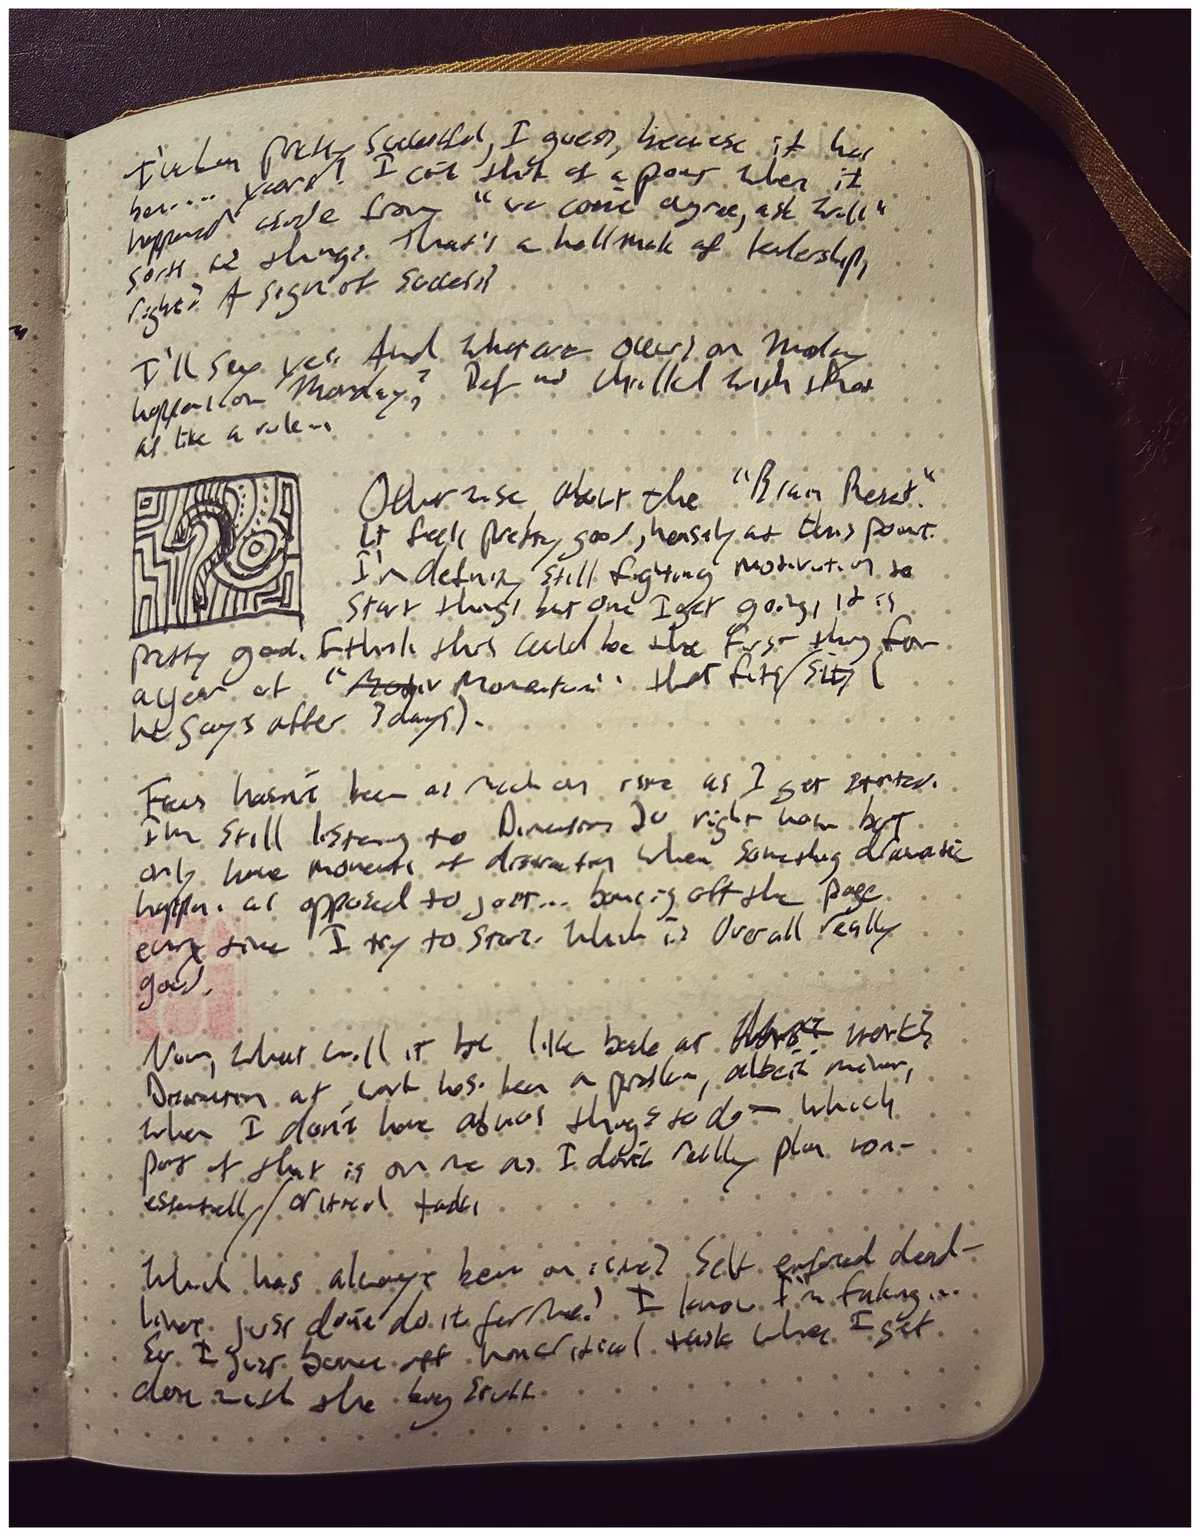 I've been pretty successful, I guess, because it has
been.... years? I can't think of a point when it
happened aside from "we can't agree, ask Will"
sorts of things. That's a hallmark of leadership,
right? A sign of success?
I'll say yes. And what are occurs on Monday
happens on Monday? Def not thrilled with that
as like a rule...
Otherwise about the "Brain Reset".
It feels pretty good, honestly at this point.
I'm definitely still fighting motivation to
start things but once I get going, it is
pretty good. I think this could be the first thing for
a year of "Momentum" that fits/sits (
he says after 3 days).
Focus hasn't been as much an issue as I get started.
I'm still listening to Dimension 20 right now but
only have moments of distraction when something dramatic
happens as opposed to just... bouncing off the page
every time I try to start. Which is overall really
good.
Now, what will it be like back at work?
Distraction at work has been a problem, albeit minor,
when I don't have obvious things to do — which
part of that is on me as I don't really plan non-
essential/critical tasks
Which has always been an issue? Self enforced dead-
lines just don't do it for me? I know I'm faking...
So I just bounce off noncritical task when I get
done with the big stuff.